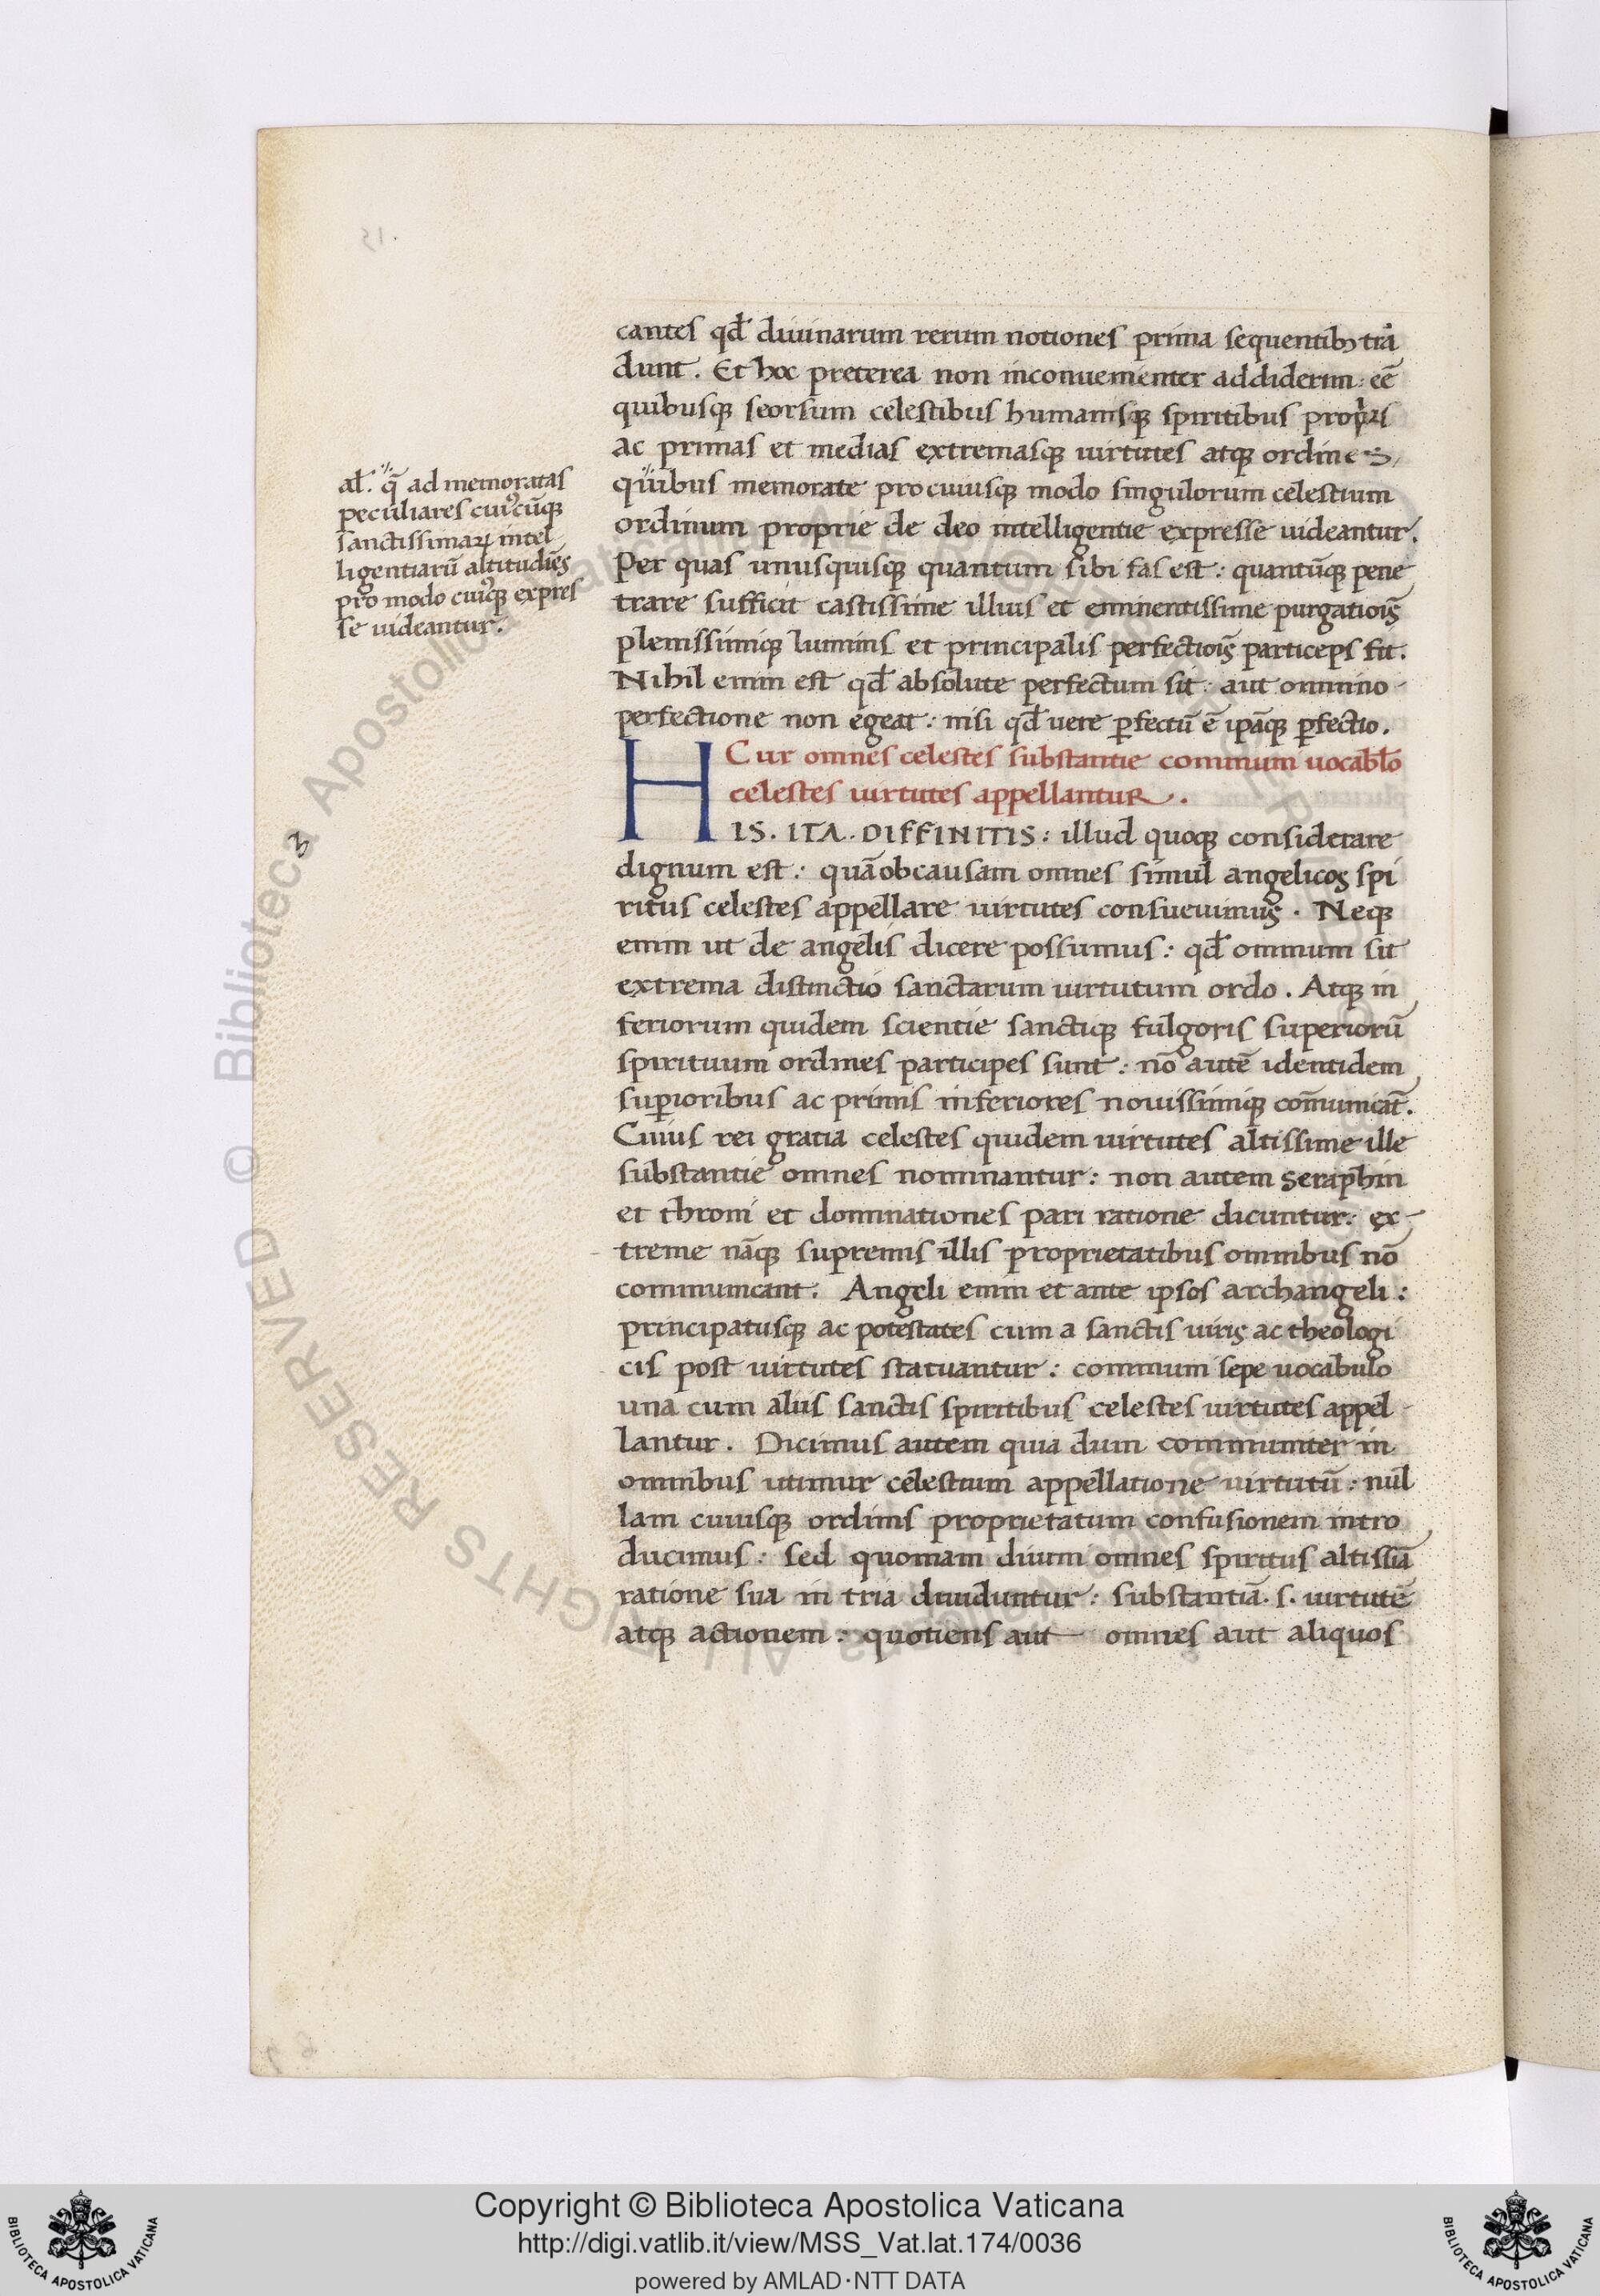 cantes qd̄ diuinarum rerum notiones prima sequentibȝ trā
dunt. Et hoc preterea non inconuenienter addiderim: eē
quibusqȝ seorsum celestibus humanisqȝ spiritibus proprias
ac primas et medias extremasqȝ uirtutes atqȝ ordines,
quibus memorate pro cuiusqȝ modo singulorum celestium
ordinum proprie de deo intelligentie expresse uideantur.
Per quas unusquisqȝ quantum sibi fas est: quantūqȝ pene
trare sufficit castissime illius et eminentissime purgatiois̄
plenissimiqȝ luminis et principalis perfectiois̄ particeps fit.
Nihil enim est qd̄ absolute perfectum sit: aut omnino
perfectione non egeat: nisi qd̄ uere ꝑfectū ē ipāqȝ ꝑfectio.
al̄. q̄ ad memoratas
peculiares cuiꝰcūqȝ
sanctissimaꝝ intel
ligentiarū altitudiēs
pro modo cuiꝰqȝ expres
se uideantur.
Cur omnes celestes substantie communi uocabl̄o
celestes uirtutes appellantur.
HIS. ITA. DIFFINITIS: illud quoqȝ considerare
dignum est: quā ob causam omnes simul angelicos spi
ritus celestes appellare uirtutes consueuimus. Neqȝ
enim ut de angelis dicere possumus: qd̄ omnium sit
extrema distinctio sanctarum uirtutum ordo. Atqȝ in
feriorum quidem scientie sanctiqȝ fulgoris superiorū
spirituum ordines participes sunt: nō autē identidem
suꝑioribus ac primis inferiores nouissimiqȝ cōmunicāt.
Cuius rei gratia celestes quidem uirtutes altissime ille
substantie omnes nominantur: non autem seraphin
et throni et dominationes pari ratione dicuntur: ex
treme nāqȝ supremis illis proprietatibus omnibus nō
communicant. Angeli enim et ante ipsos archangeli:
principatusqȝ ac potestates cum a sanctis uiris ac theologi
cis post uirtutes statuantur: communi sepe uocabulo
una cum aliis sanctis spiritibus celestes uirtutes appel
lantur. Dicimus autem quia dum communiter in
omnibus utimur celestium appellatione uirtutū: nul
lam cuiusqȝ ordinis proprietatum confusionem intro
ducimus: sed quoniam diuini omnes spiritus altissīa
ratione sua in tria diuiduntur: substantiā. s. uirtutē
atqȝ actionem: quotiens aut omnes aut aliquos
© Biblioteca Apostolica Vaticana ALL RIGHTS RESERVED
Copyright © Biblioteca Apostolica Vaticana
http://digi.vatlib.it/view/MSS_Vat.lat.174/0036
powered by AMLAD·NTT DATA
BIBLIOTECA APOSTOLICA VATICANA
BIBLIOTECA APOSTOLICA VATICANA